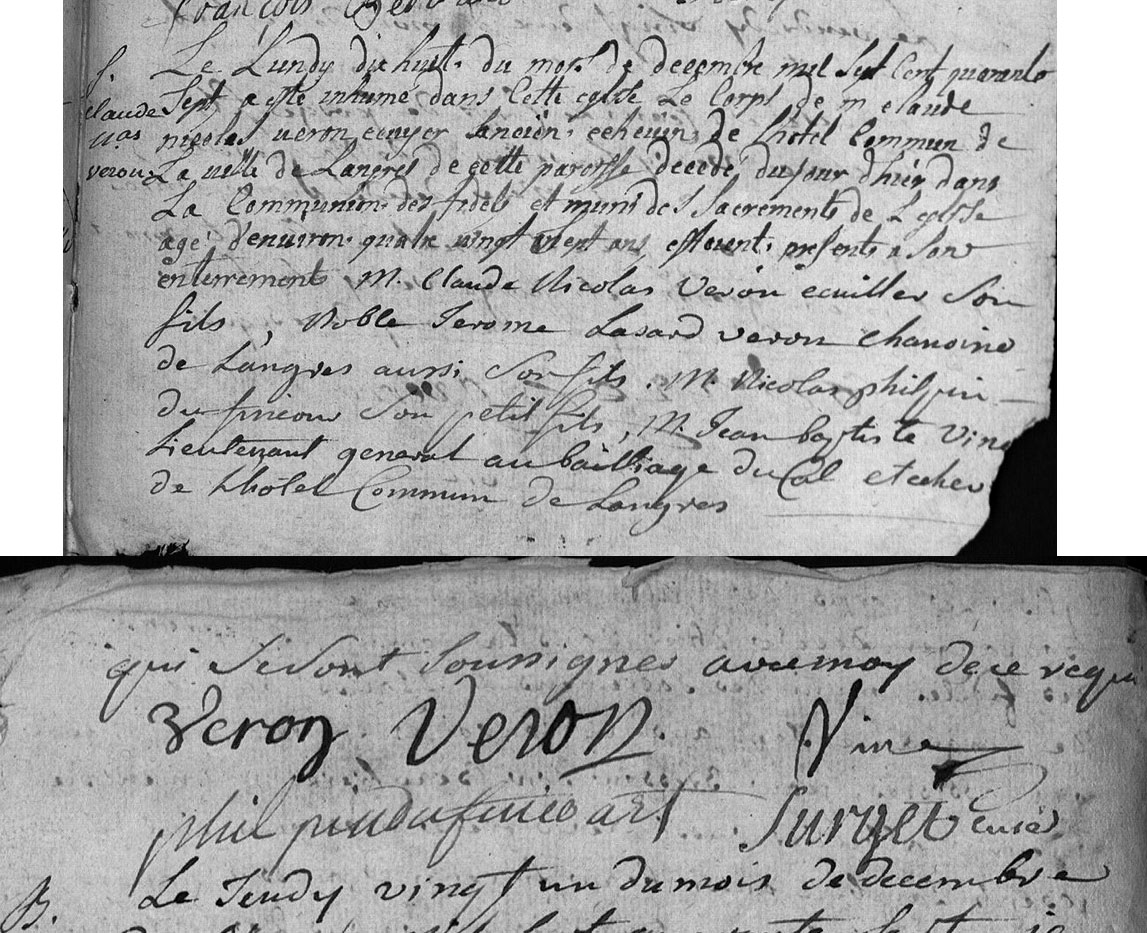 françois
S.
claude
n.as
veron
Le Lundy dix huit du mois de decembre mil sept cent quarante
sept a esté inhumé dans cette eglise Le Corps de m claude
nicolas veron ecuyer lancien echevin de Lhotel Commun de
La ville de Langres de cette paroisse decedé du jour d'hier dans
La Communion des fidels et muni des Sacrements de L'eglise
agé d'environ quatre vingt ans estoient presents a son
enterrement M. Claude Nicolas Veron ecuiller Son
fils, Noble Jerome Lasard veron chanoine
de Langres aussi Son fils. M. Nicolas philpin
du Son petit fils, M. Jean baptiste Vin
Lieutenant general au bailliage ducal et echev
de Lhotel Commun de Langres
qui se sont soussignes avec moy de ce requ
Veron Veron Vin
philpin Surget curé
B. Le Jeudy vingt un du mois de decembre